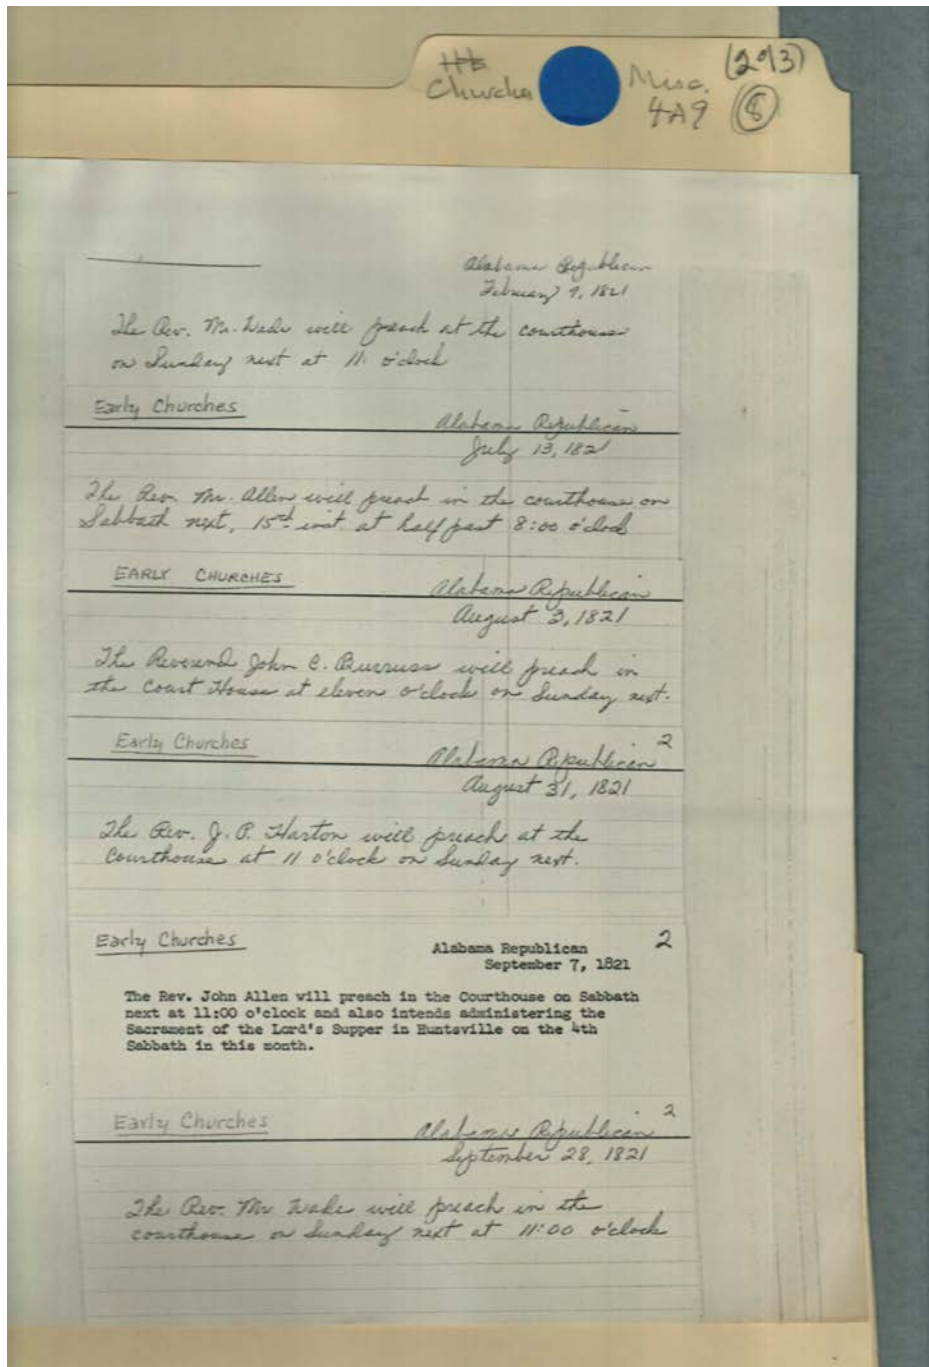 (2 of 3)
Churches
Misc.
4A9
8
Alabama Republican
February 9, 1821
The Rev. Mr. Wade will preach at the courthouse
on Sunday next at 11 o'clock
Early Churches
Alabama Republican
July 13, 1821
The Rev. Mr. Allen will preach in the courthouse on
Sabbath next, 15th inst. at half past 8:00 o'clock
EARLY CHURCHES
Alabama Republican
August 3, 1821
The Reverend John C. Burruss will preach in
the Court House at eleven o'clock on Sunday next.
Early Churches
2
Alabama Republican
August 31, 1821
The Rev. J. P. Harton will preach at the
Courthouse at 11 o'clock on Sunday next.
Early Churches
2
Alabama Republican
September 7, 1821
The Rev. John Allen will preach in the Courthouse on Sabbath
next at 11:00 o'clock and also intends administering the
Sacrament of the Lord's Supper in Huntsville on the 4th
Sabbath in this month.
Early Churches
2
Alabama Republican
September 28, 1821
The Rev. Mr Wade will preach in the
courthouse on Sunday next at 11:00 o'clock